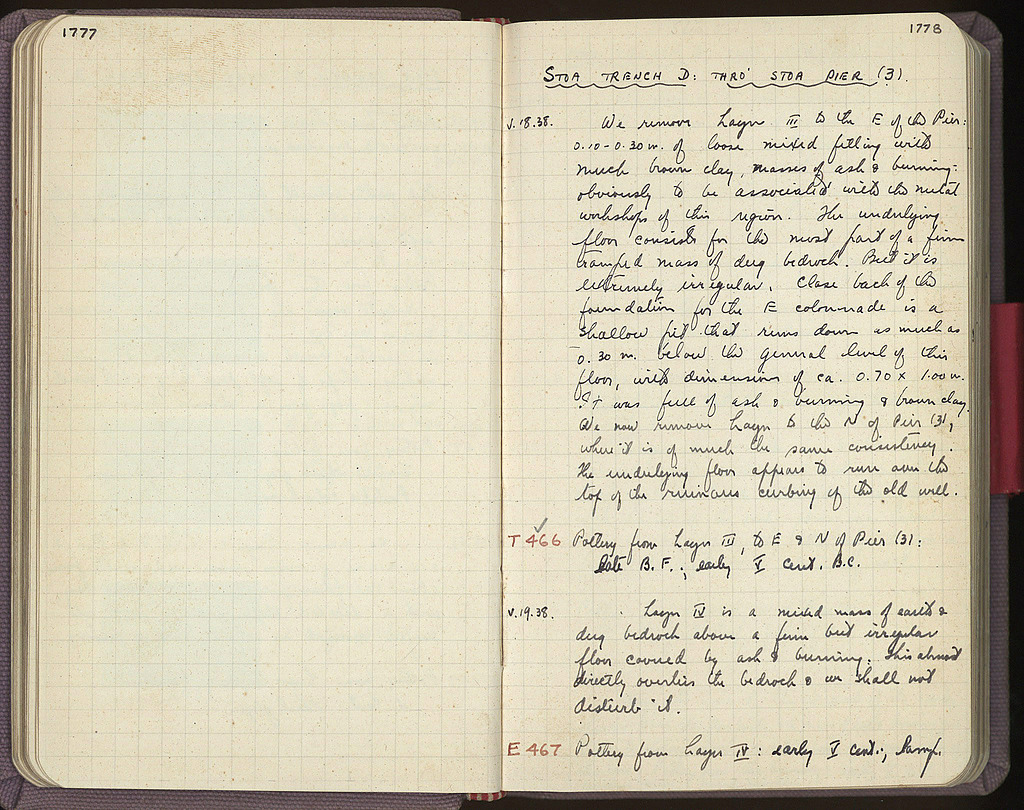 1777
1778
STOA TRENCH D: THRO' STOA PIER (3).
V.18.38. We remove Layer III to the E of the Pier:
0.10-0.30 m. of loose mixed filling with
much brown clay, masses of ash & burning:
obviously to be associated with the metal
workshops of this region. The underlying
floor consists for the most part of a firm
tramped mass of dug bedrock. But it is
extremely irregular. Close back of the
foundation for the E colonnade is a
shallow pit that runs down as much as
0.30 m. below the general level of this
floor, with dimensions of ca. 0.70 x 1.00 m.
It was full of ash & burning & brown clay.
We now remove Layer to the N of Pier (3),
where it is of much the same consistency.
The underlying floor appears to run over the
top of the ruinous curbing of the old well.
T 466 Pottery from Layer III, to E & N of Pier (3):
late B.F.; early V cent. B.C.
V.19.38. Layer IV is a mixed mass of earth &
dug bedrock above a firm but irregular
floor covered by ash & burning. This almost
directly overlies the bedrock & we shall not
disturb it.
E 467 Pottery from Layer IV: early V cent.; Lamp.